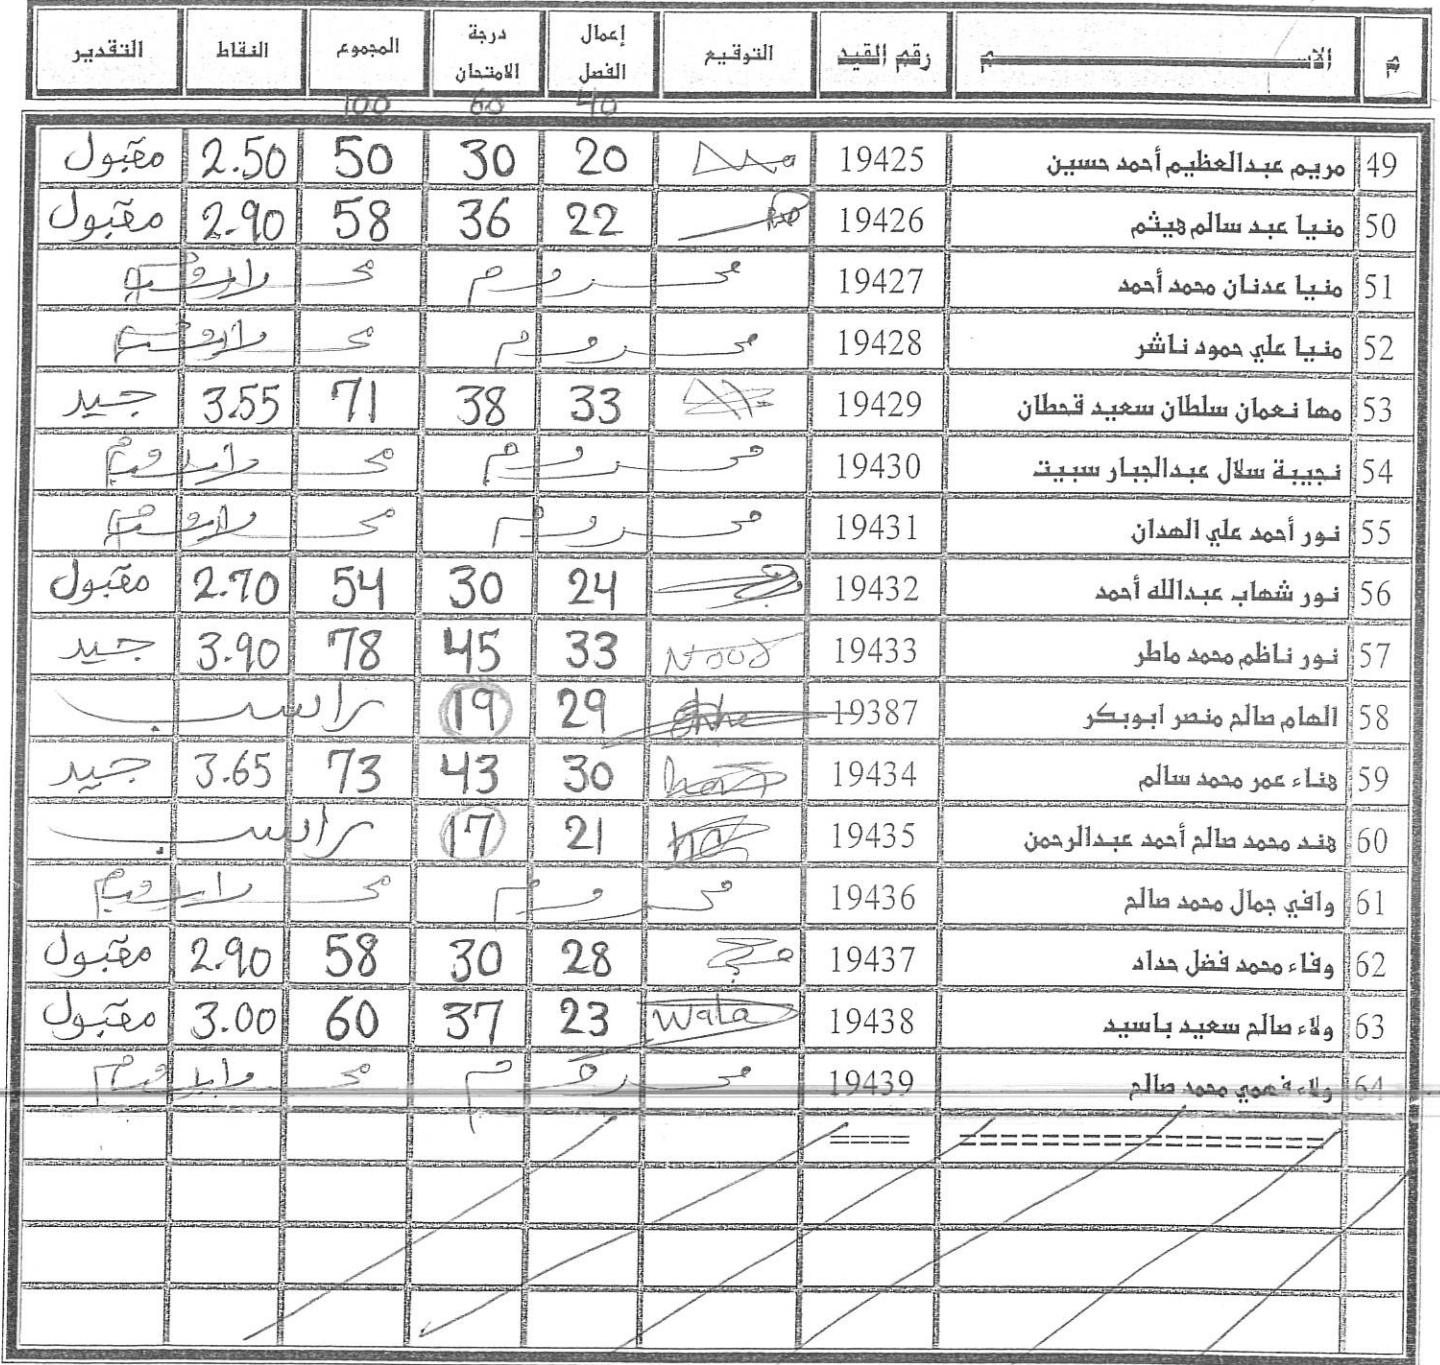 م الاســـــــم رقم القيد التوقيع إعمال الفصل درجة الامتحان المجموع النقاط التقدير
40 60 100
49 مريم عبدالعظيم أحمد حسين 19425 20 30 50 2.50 مقبول
50 منيا عبد سالم هيثم 19426 22 36 58 2.90 مقبول
51 منيا عدنان محمد أحمد 19427 محروم
52 منيا علي حمود ناشر 19428 محروم
53 مها نعمان سلطان سعيد قحطان 19429 33 38 71 3.55 جيد
54 نجيبة سلال عبدالجبار سبيت 19430 محروم
55 نور أحمد علي الهدان 19431 محروم
56 نور شهاب عبدالله أحمد 19432 24 30 54 2.70 مقبول
57 نور ناظم محمد ماطر 19433 Noor 33 45 78 3.90 جيد
58 الهام صالح منصر ابوبكر 19387 29 19 راسب
59 هناء عمر محمد سالم 19434 30 43 73 3.65 جيد
60 هند محمد صالح أحمد عبدالرحمن 19435 21 17 راسب
61 وافي جمال محمد صالح 19436 محروم
62 وفاء محمد فضل حداد 19437 28 30 58 2.90 مقبول
63 ولاء صالح سعيد باسيد 19438 Wala 23 37 60 3.00 مقبول
64 ولاء فهمي محمد صالح 19439 محروم
==================== ====